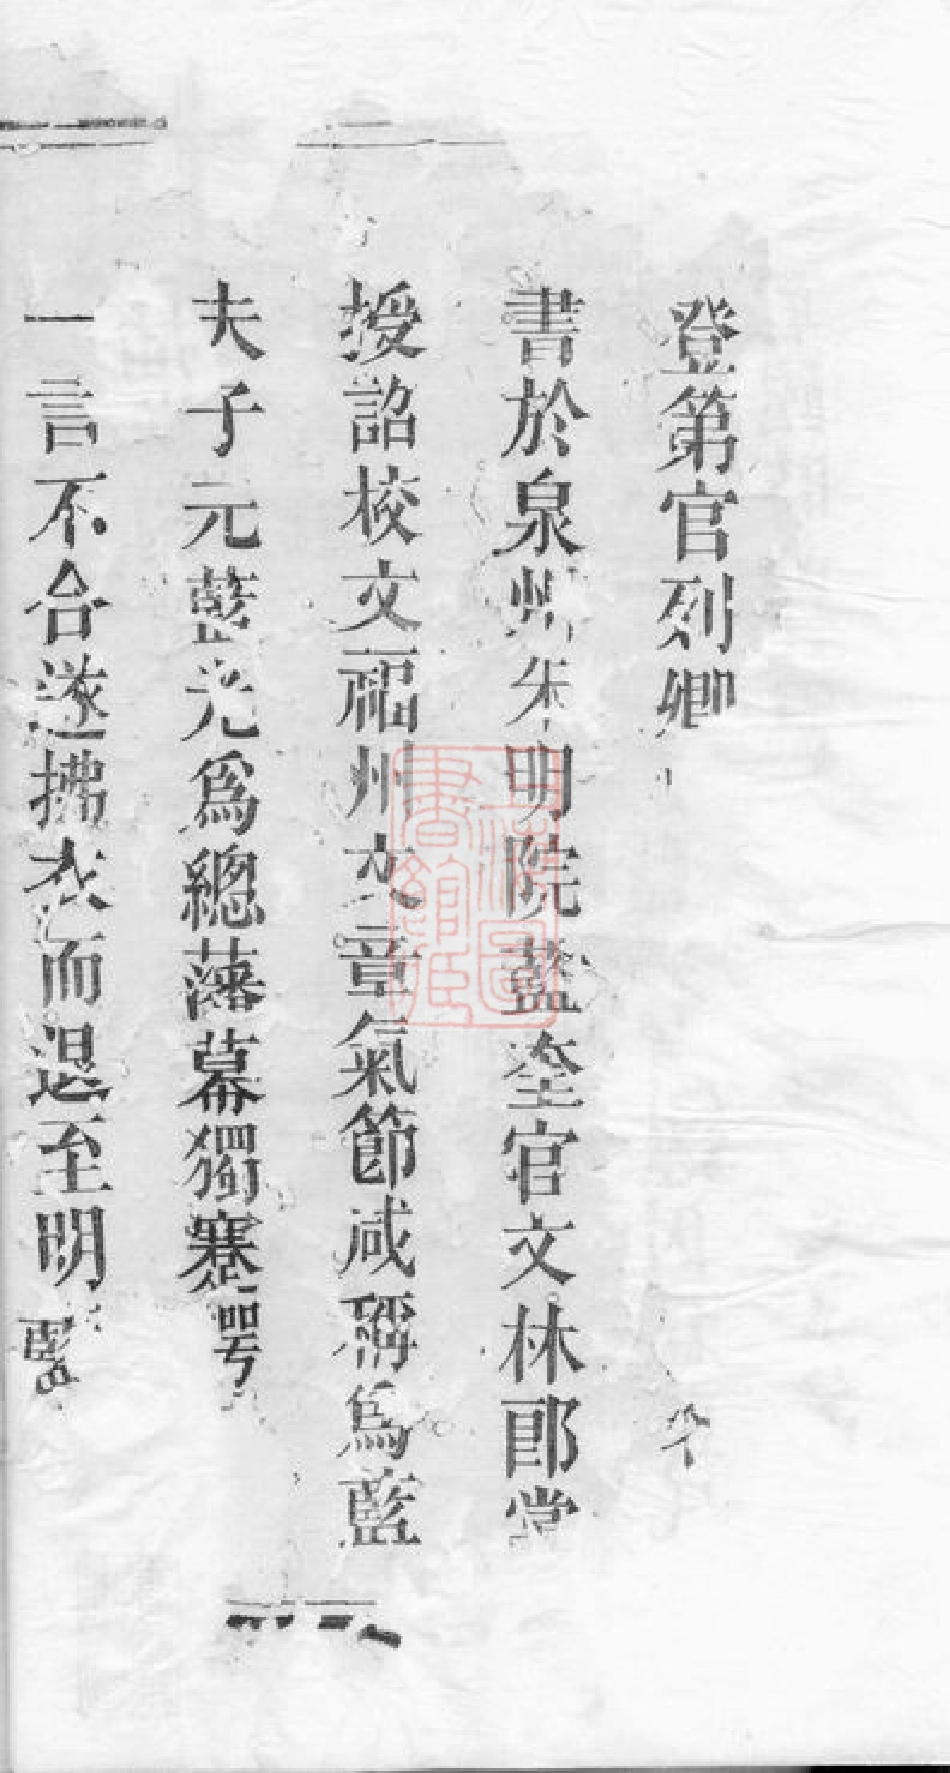 登第官列卿
書於泉州朱明院藍奎官文林郎掌
授詔校文福州文章氣節咸稱爲藍
夫子元藍光爲總藩幕獨蹇咢
一言不合遂拂衣而退至明藍